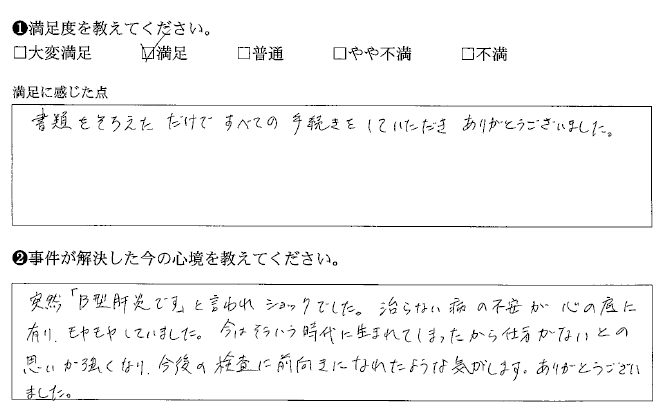 ❶満足度を教えてください。
□大変満足 ☑満足 □普通 □やや不満 □不満
満足に感じた点
書類をそろえただけですべての手続きをしていただきありがとうございました。
❷事件が解決した今の心境を教えてください。
突然「B型肝炎です」と言われショックでした。治らない病の不安が心の底に
有り、モヤモヤしていました。今はそういう時代に生まれてしまったから仕方がないとの
思いが強くなり、今後の検査に前向きになれたような気がします。ありがとうござい
ました。